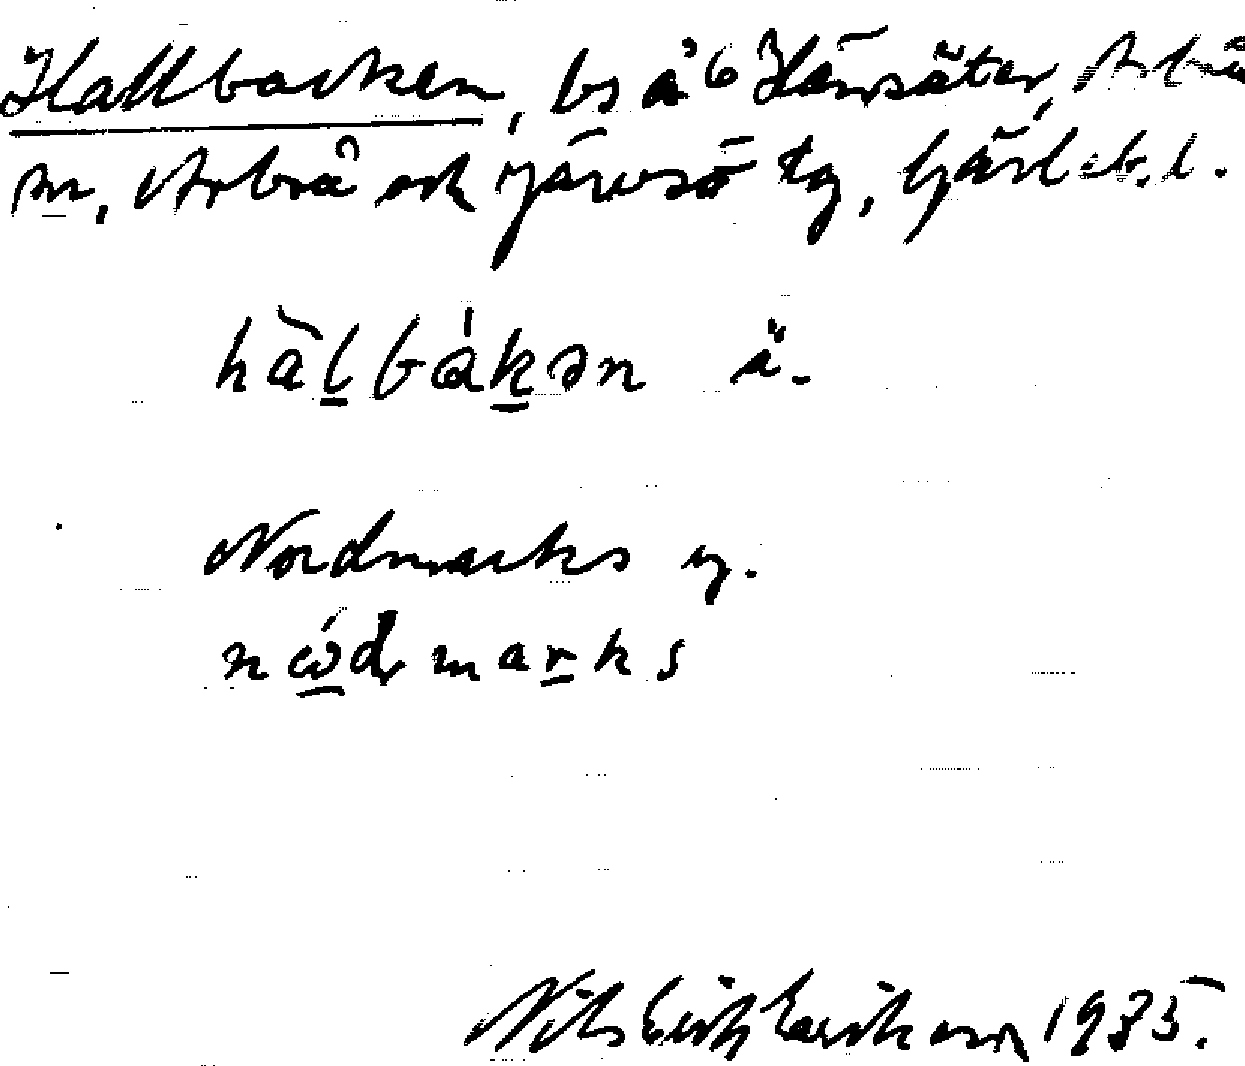 Hallbacken, bs å 6 Hänsäter, Arbrå
sn, Arbrå och Järvsö tg, Gävleb. l.
hàlbákən ä.
Nordmarks g.
nódmarks
Nils Erik Eriksson 1935.